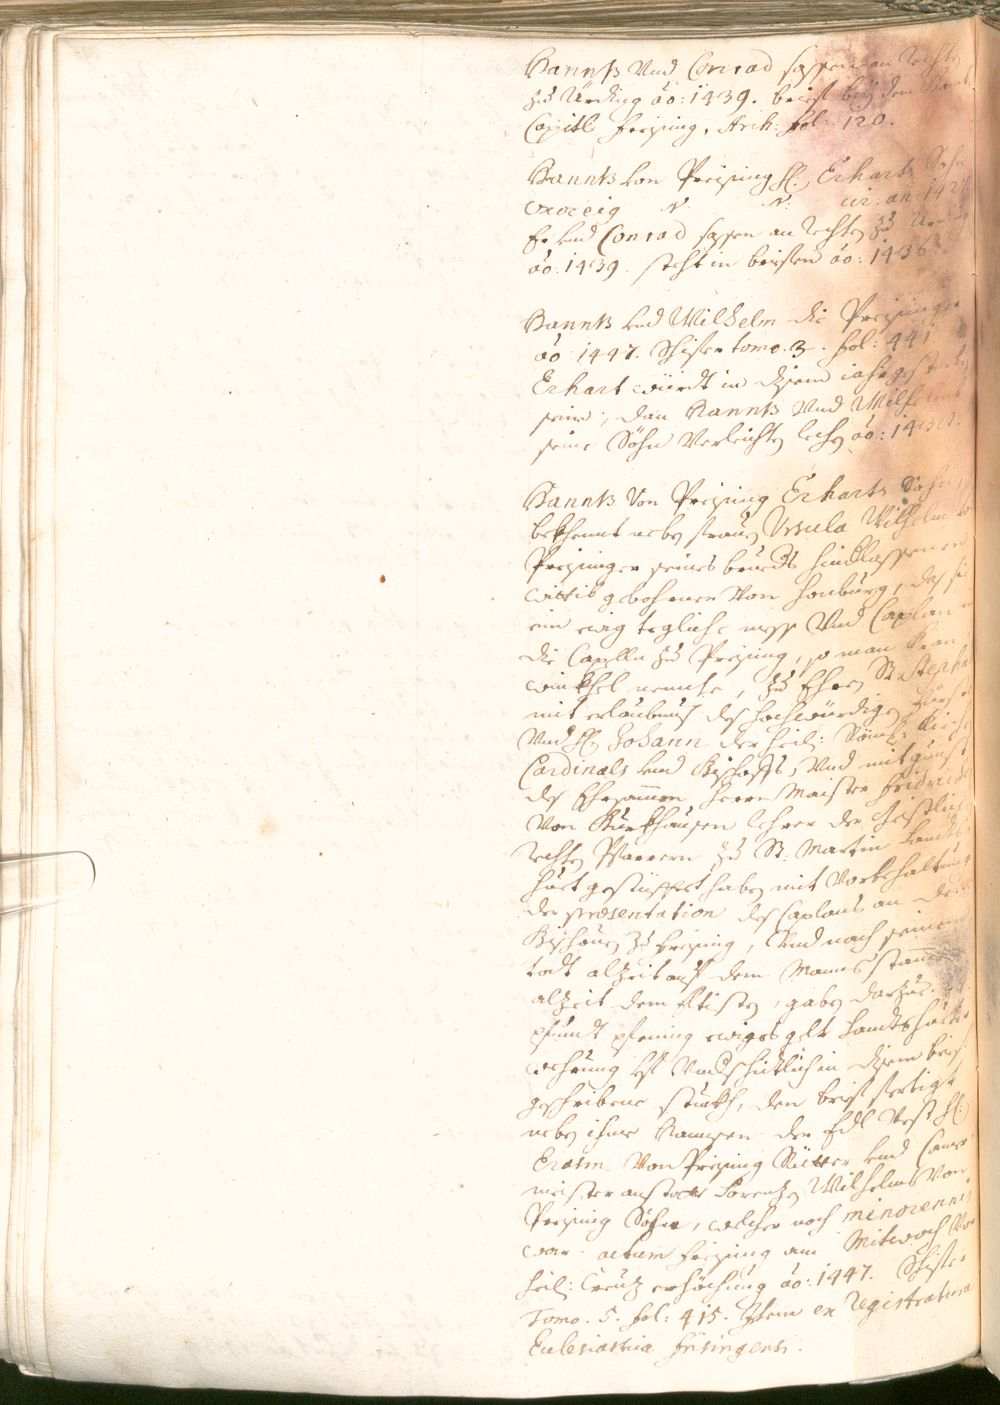 Hannß Vnd Conrad sassen an Rechten
zu Ärding ao: 1439. briefl bey dem Domb
Capitl Freysing, Arch: fol: 120.
Hannß von Preysing H: Erharts Sohn
uxor eig N. N: vir: an: 142
Er vnd Conrad sassen an Rechten zu
ao: 1439. steht in briefen ao: 1436.
Hannß vnd Wilhelm die Preysinger
ao 1447. Schifer tomo. 3. fol: 441.
Erhart würdt in disem iahr gestorben
sein, dan Hannß Vnd Wilhelm
seine Söhn Verleichten lechen ao:
Hannß Von Preysing Erharts Sohn,
bekhennt neben frauen Vrsula Wilhelm
Preysinger seines brueders hindlassenen
wittib gebohrner Von Honburg, das sie
ein ewig tegliche mess Vnd Caplan in
die Capelln zu Preysing, so man
winkhel nennte, zu Ehren St. Stepha
mit erlaubnuß des hochwürdigen
Vnd H: Johann der heil: Röm: Kirchen
Cardinals vnd Bischoffs, Vnd mit gunst
des Ehrsamen Herrn Maister Friderich
Von Burkhausen lehrer der Geistlichen
rechten Pfarrern zu St. Martin Landts
huet gestüfftet haben mit Vorbehaltung
der præsentation des Caplans an den
Bischouen zu Freysing, Vnd nach seinem
todt alzeit auf dem Manns stamen
alzeit dem Eltisten, gaben darzue
pfundt pfening ewiges gelt Landtshueter
wehrung Vnd in disem brief
geschribene stuckh, den brief fertigt
neben ihme Hannsen der Edl Vest H:
Erasm Von Preysing Ritter vnd Camer
meister anstatt Lorentzen Wilhelms Von
Preysing Sohn, welcher noch minorennis
war. actum Freysing am Mitwoch Vor
heil: Creutz erhöchung ao: 1447. Schifer
Tomo. 5. fol: 415. Item ex Registratura
Eclesiastica Frisingens.